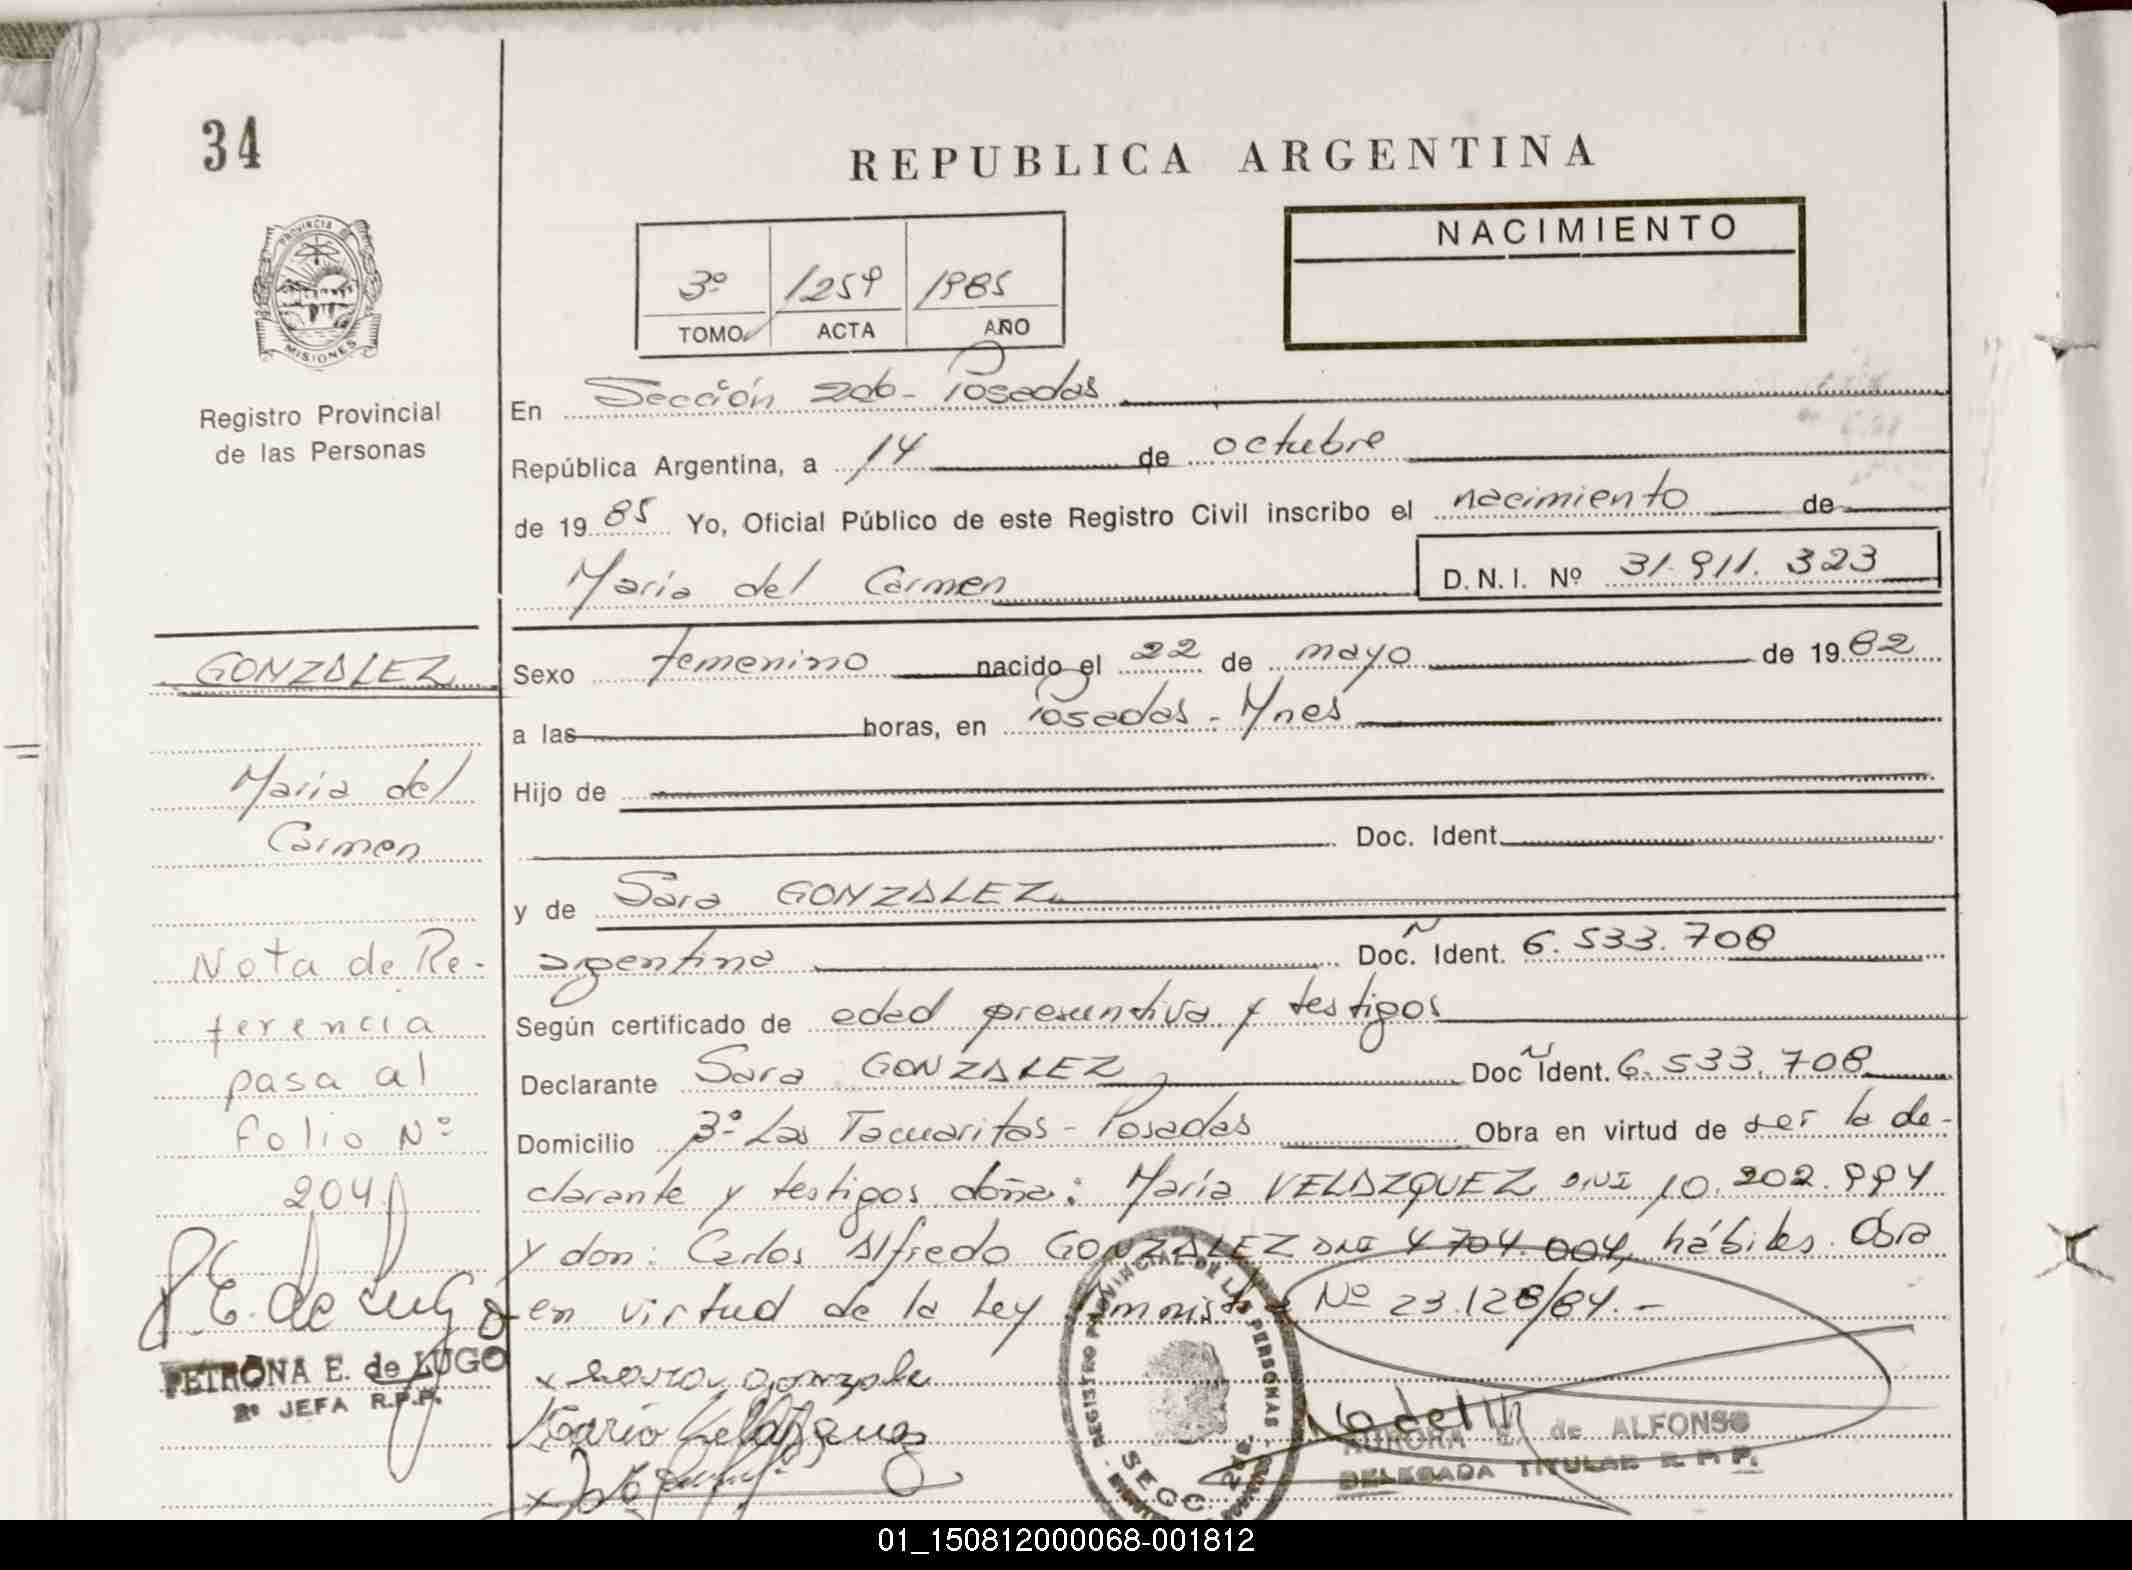 34
REPUBLICA ARGENTINA
PROVINCIA DE
MISIONES
Registro Provincial
de las Personas
3º 1259 1985
TOMO ACTA AÑO
NACIMIENTO
En Sección 2da - Posadas
República Argentina, a 14 de octubre
de 1985 Yo, Oficial Público de este Registro Civil inscribo el nacimiento de
María del Carmen D.N.I. Nº 31.911.323
GONZALEZ
María del
Carmen
Nota de Re-
ferencia
pasa al
folio Nº
204
P.E. de Lugo
PETRONA E. de LUGO
2º JEFA R.P.P.
Sexo femenino nacido el 22 de mayo de 1982
a las horas, en Posadas - Mnes
Hijo de
Doc. Ident.
y de Sara GONZALEZ
argentina Doc. Ident. Nº 6.533.708
Según certificado de edad presuntiva y testigos
Declarante Sara GONZALEZ Doc. Ident. Nº 6.533.708
Domicilio Bº Las Tacuaritas - Posadas Obra en virtud de ser la de-
clarante y testigos doña: María VELAZQUEZ DNI 10.202.994
y don: Carlos Alfredo GONZALEZ DNI 4.704.004, hábiles. Obra
en virtud de la Ley Amnistía Nº 23.128/84.-
x Sara Gonzale
María Velazquez
REGISTRO PROVINCIAL DE LAS PERSONAS
SECC. 2da.
de ALFONSO
DELEGADA TITULAR R. P. P.
01_150812000068-001812